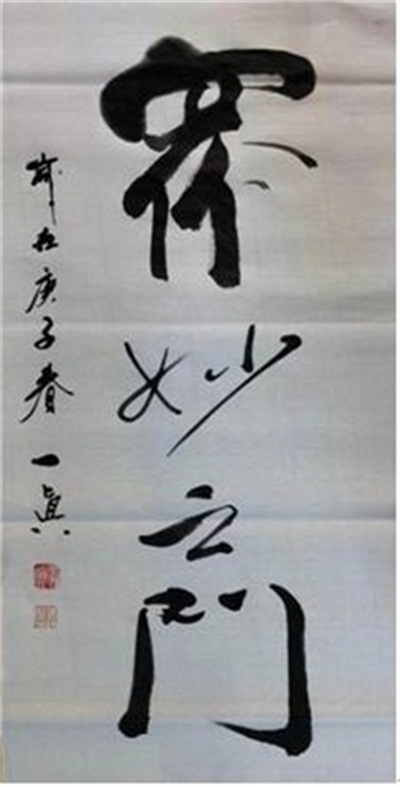 眾妙之門
歲在庚子春 一眞